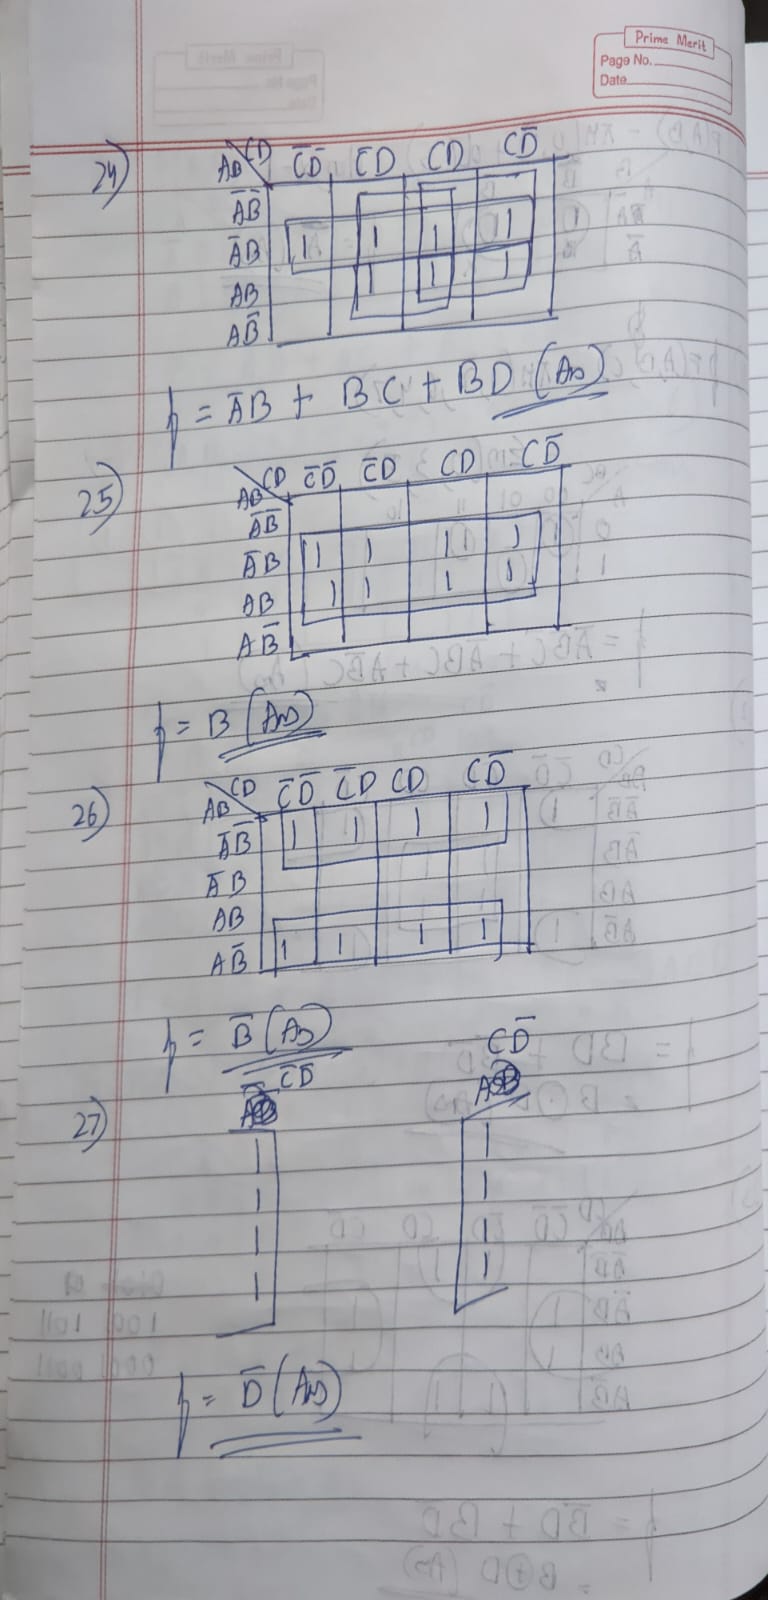 Prime Merit
Page No.
Date
24)
AB CD C̅D̅ C̅D CD CD̅
A̅B̅
A̅B 1 1 1 1
AB 1 1 1
AB̅
f = A̅B + BC + BD (Ans)
25)
AB CD C̅D̅ C̅D CD CD̅
A̅B̅
A̅B 1 1 1 1
AB 1 1 1 1
AB̅
f = B (Ans)
26)
AB CD C̅D̅ C̅D CD CD̅
A̅B̅ 1 1 1 1
A̅B
AB
AB̅ 1 1 1 1
f = B̅ (Ans)
27)
C̅D̅ CD̅
1 1
1 1
1 1
1 1
f = D̅ (Ans)